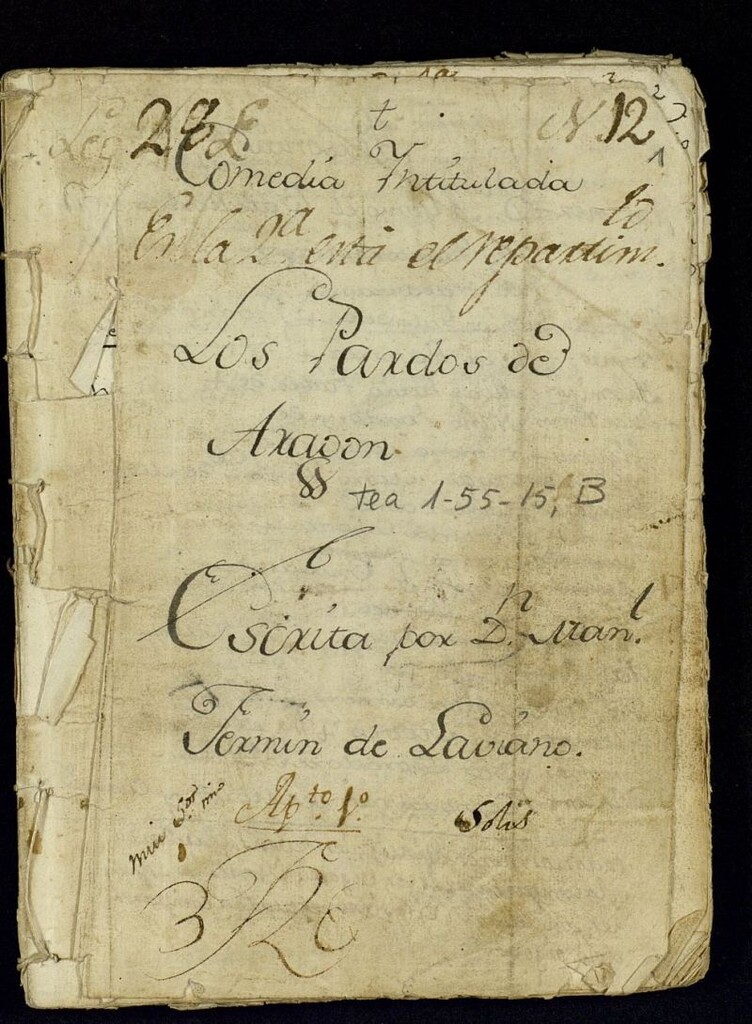 Leg 2º
N. 12
1
Comedia Intitulada
En la 2ª está el repartim.to
Los Pardos de
Aragon
tea 1-55-15, B
Escrita por D.n Man.l
Fermin de Laviano.
mui S.or mio
Ap.to 1.º
Solis
3